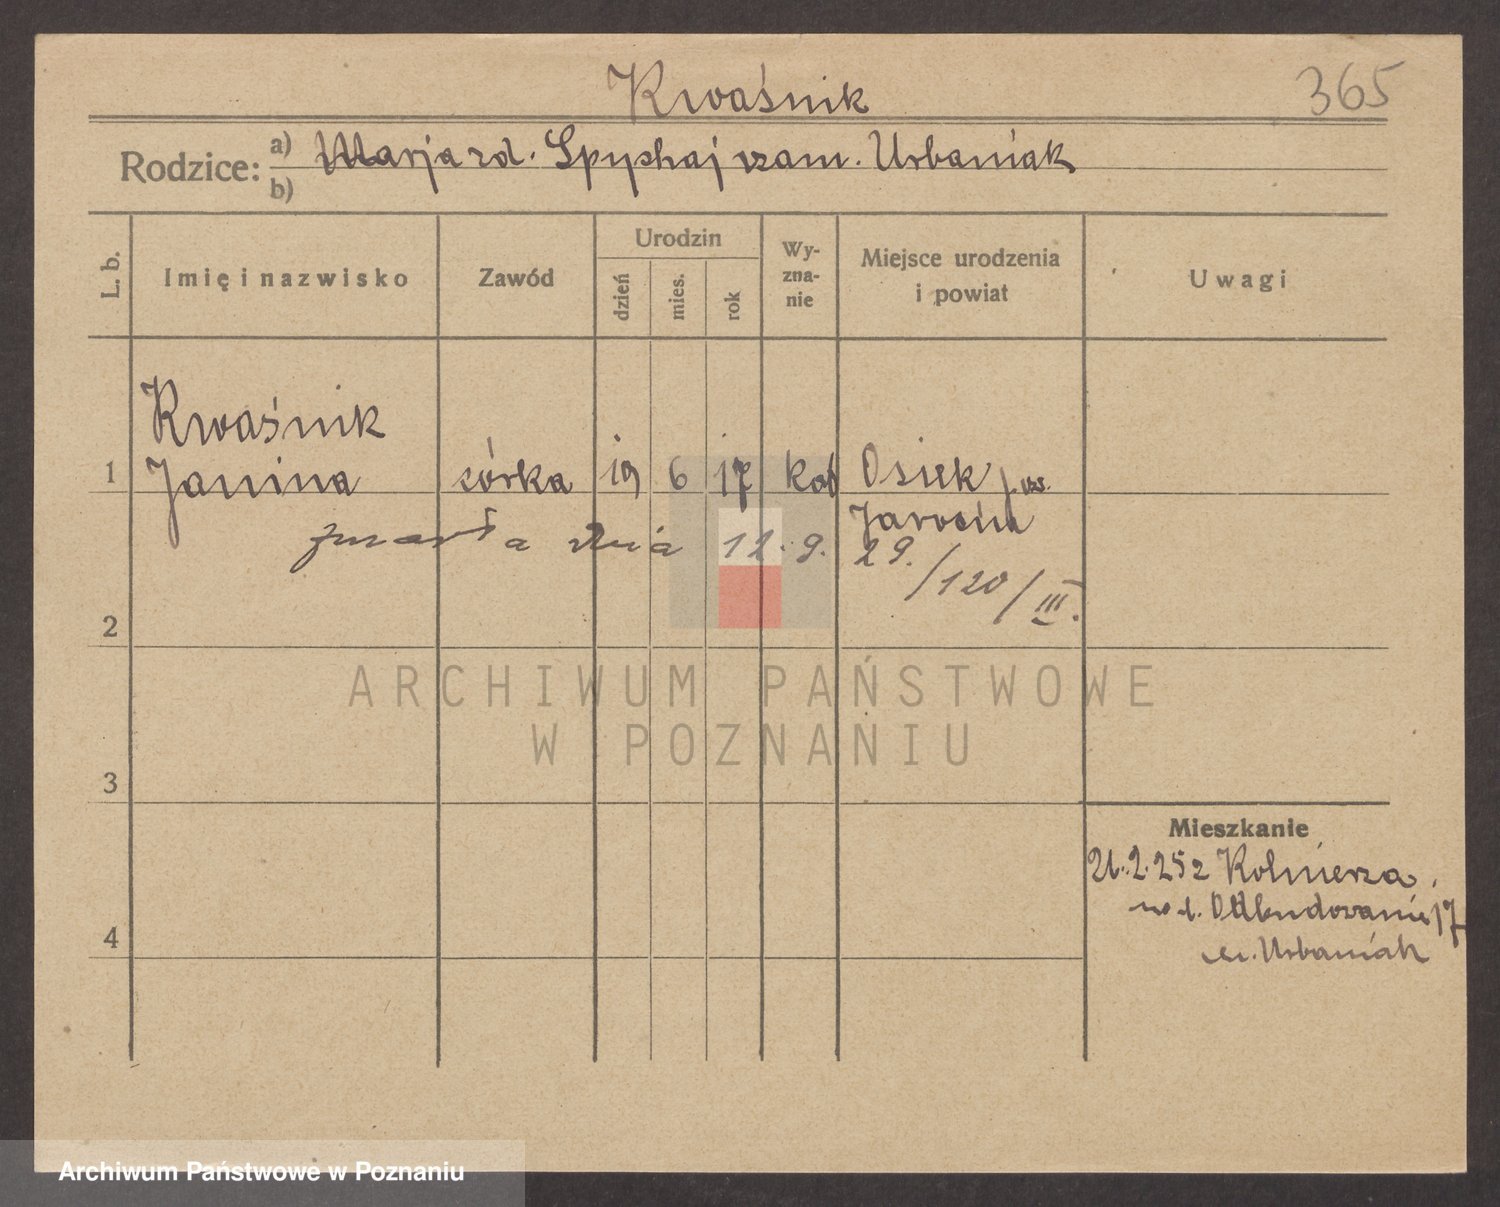 Kwaśnik
365
Rodzice: a) Marja zd. Spychaj zam. Urbaniak
b)
L. b.
Imię i nazwisko
Zawód
Urodzin
dzień
mies.
rok
Wy-
zna-
nie
Miejsce urodzenia
i powiat
Uwagi
Kwaśnik
1 Janina córka 19 6 17 kat Osiek
Jarocin
zmarła dnia 12. 9. 29. /120/III.
2
3
4
Mieszkanie
21.2.25 z Kołnierza
Odbudowanie 17
Urbaniak
ARCHIWUM PAŃSTWOWE
W POZNANIU
Archiwum Państwowe w Poznaniu